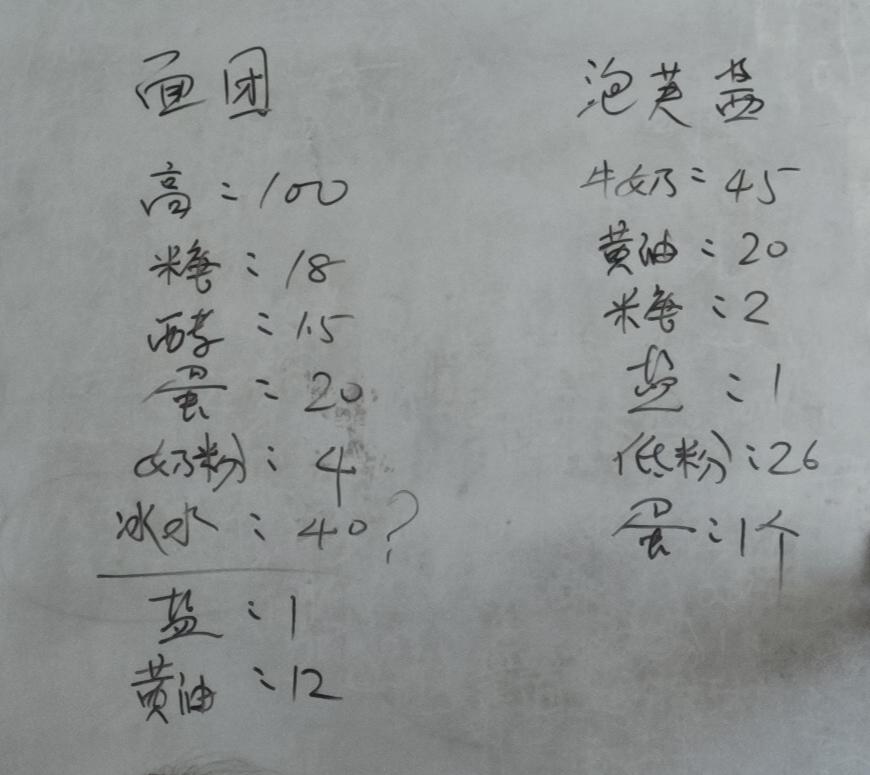 面团
高:100
糖:18
酵:1.5
蛋:20
奶粉:4
冰水:40?
盐:1
黄油:12
泡芙酱
牛奶:45
黄油:20
糖:2
盐:1
低粉:26
蛋:1个